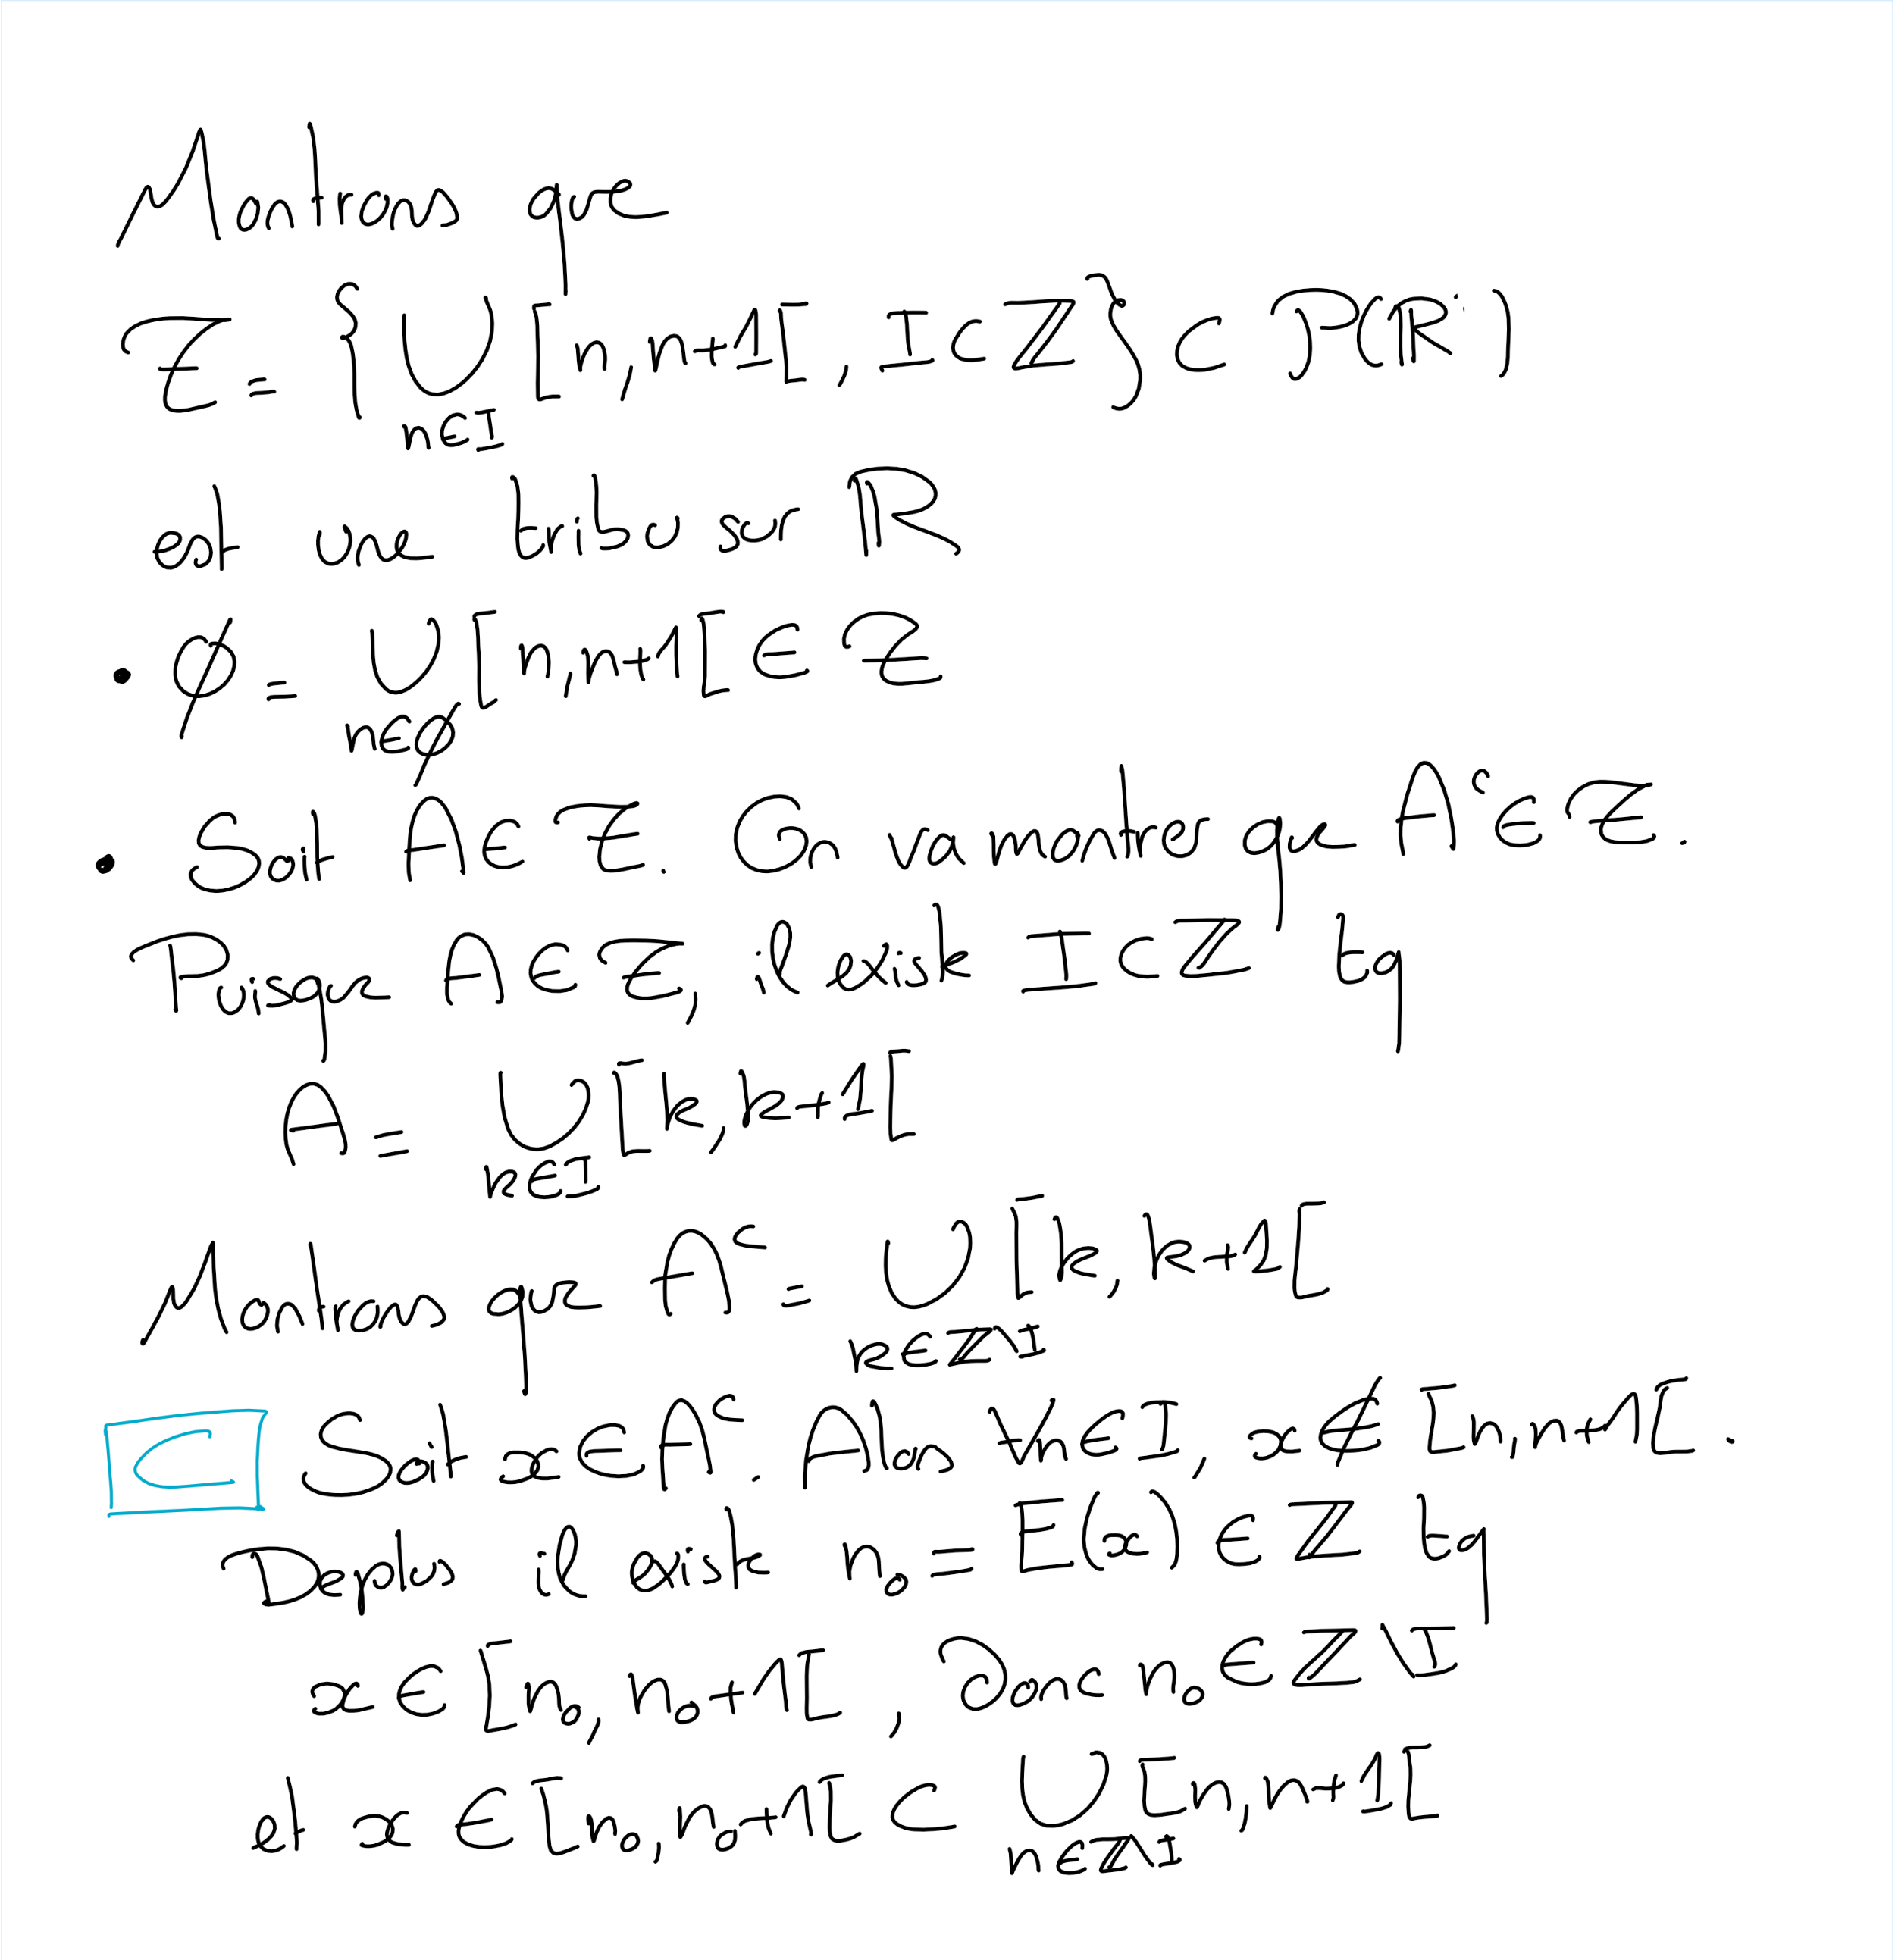 Montrons que
Z = { ∪ [n, n+1[, I ⊂ ℤ } ⊂ P(ℝ)
n∈I
est une tribu sur ℝ
• ∅ = ∪ [n, n+1[ ∈ Z
n∈∅
• Soit A ∈ Z. On va montrer que Aᶜ ∈ Z.
Puisque A ∈ Z, il existe I ⊂ ℤ tq
A = ∪ [k, k+1[
k∈I
Montrons que Aᶜ = ∪ [k, k+1[
k∈ℤ\I
⊂ Soit x ∈ Aᶜ. Alors ∀n∈I, x ∉ [n, n+1[.
De plus il existe n₀ = E(x) ∈ ℤ tq
x ∈ [n₀, n₀+1[, donc n₀ ∈ ℤ\I
et x ∈ [n₀, n₀+1[ ⊂ ∪ [n, n+1[
n∈ℤ\I